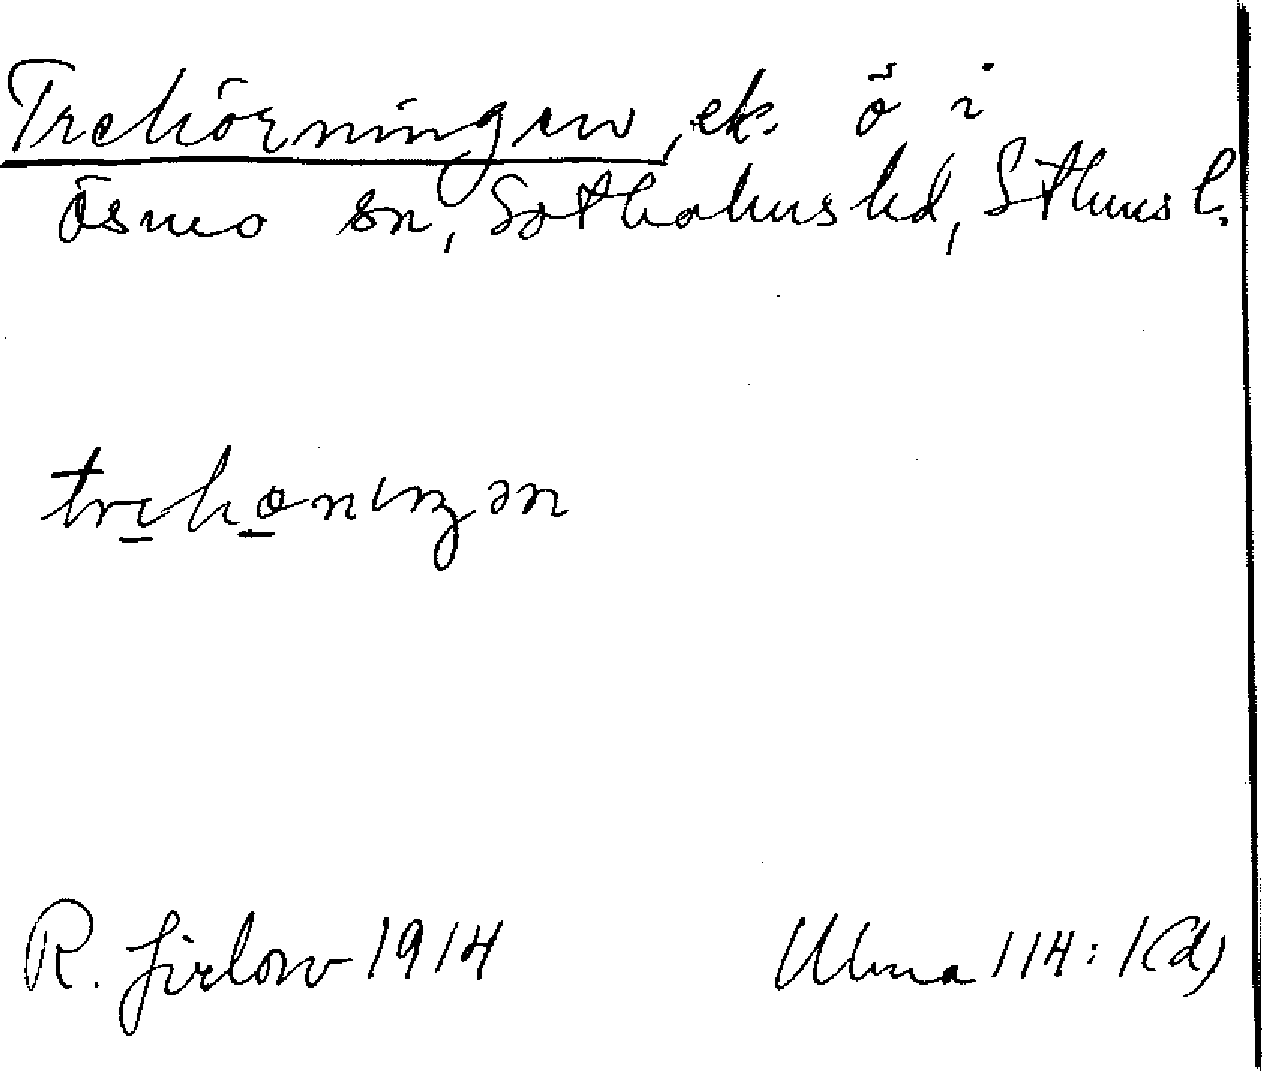 Trehörningen, ek. ö i
Ösmo sn, Sotholms hd, Sthms l.
trehöniŋən
R. Jirlow 1914
Ulma 114:1(d)